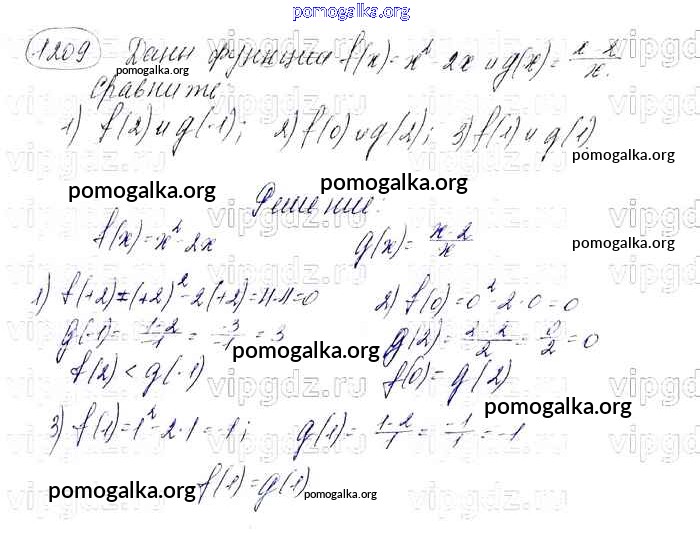 pomogalka.org
1209 Даны функции f(x) = x² - 2x и g(x) = (x-2)/x.
Сравните:
1) f(2) и g(-1); 2) f(0) и g(2); 3) f(1) и g(1)
Решение:
f(x) = x² - 2x
g(x) = (x-2)/x
1) f(+2) = (+2)² - 2(+2) = 4-4 = 0
g(-1) = (-1-2)/-1 = -3/-1 = 3
f(2) < g(-1)
2) f(0) = 0² - 2·0 = 0
g(2) = (2-2)/2 = 0/2 = 0
f(0) = g(2)
3) f(1) = 1² - 2·1 = -1; g(1) = (1-2)/1 = -1/1 = -1
f(1) = g(1)
pomogalka.org
pomogalka.org
pomogalka.org
pomogalka.org
pomogalka.org
pomogalka.org
pomogalka.org
pomogalka.org
pomogalka.org
vipgdz.ru